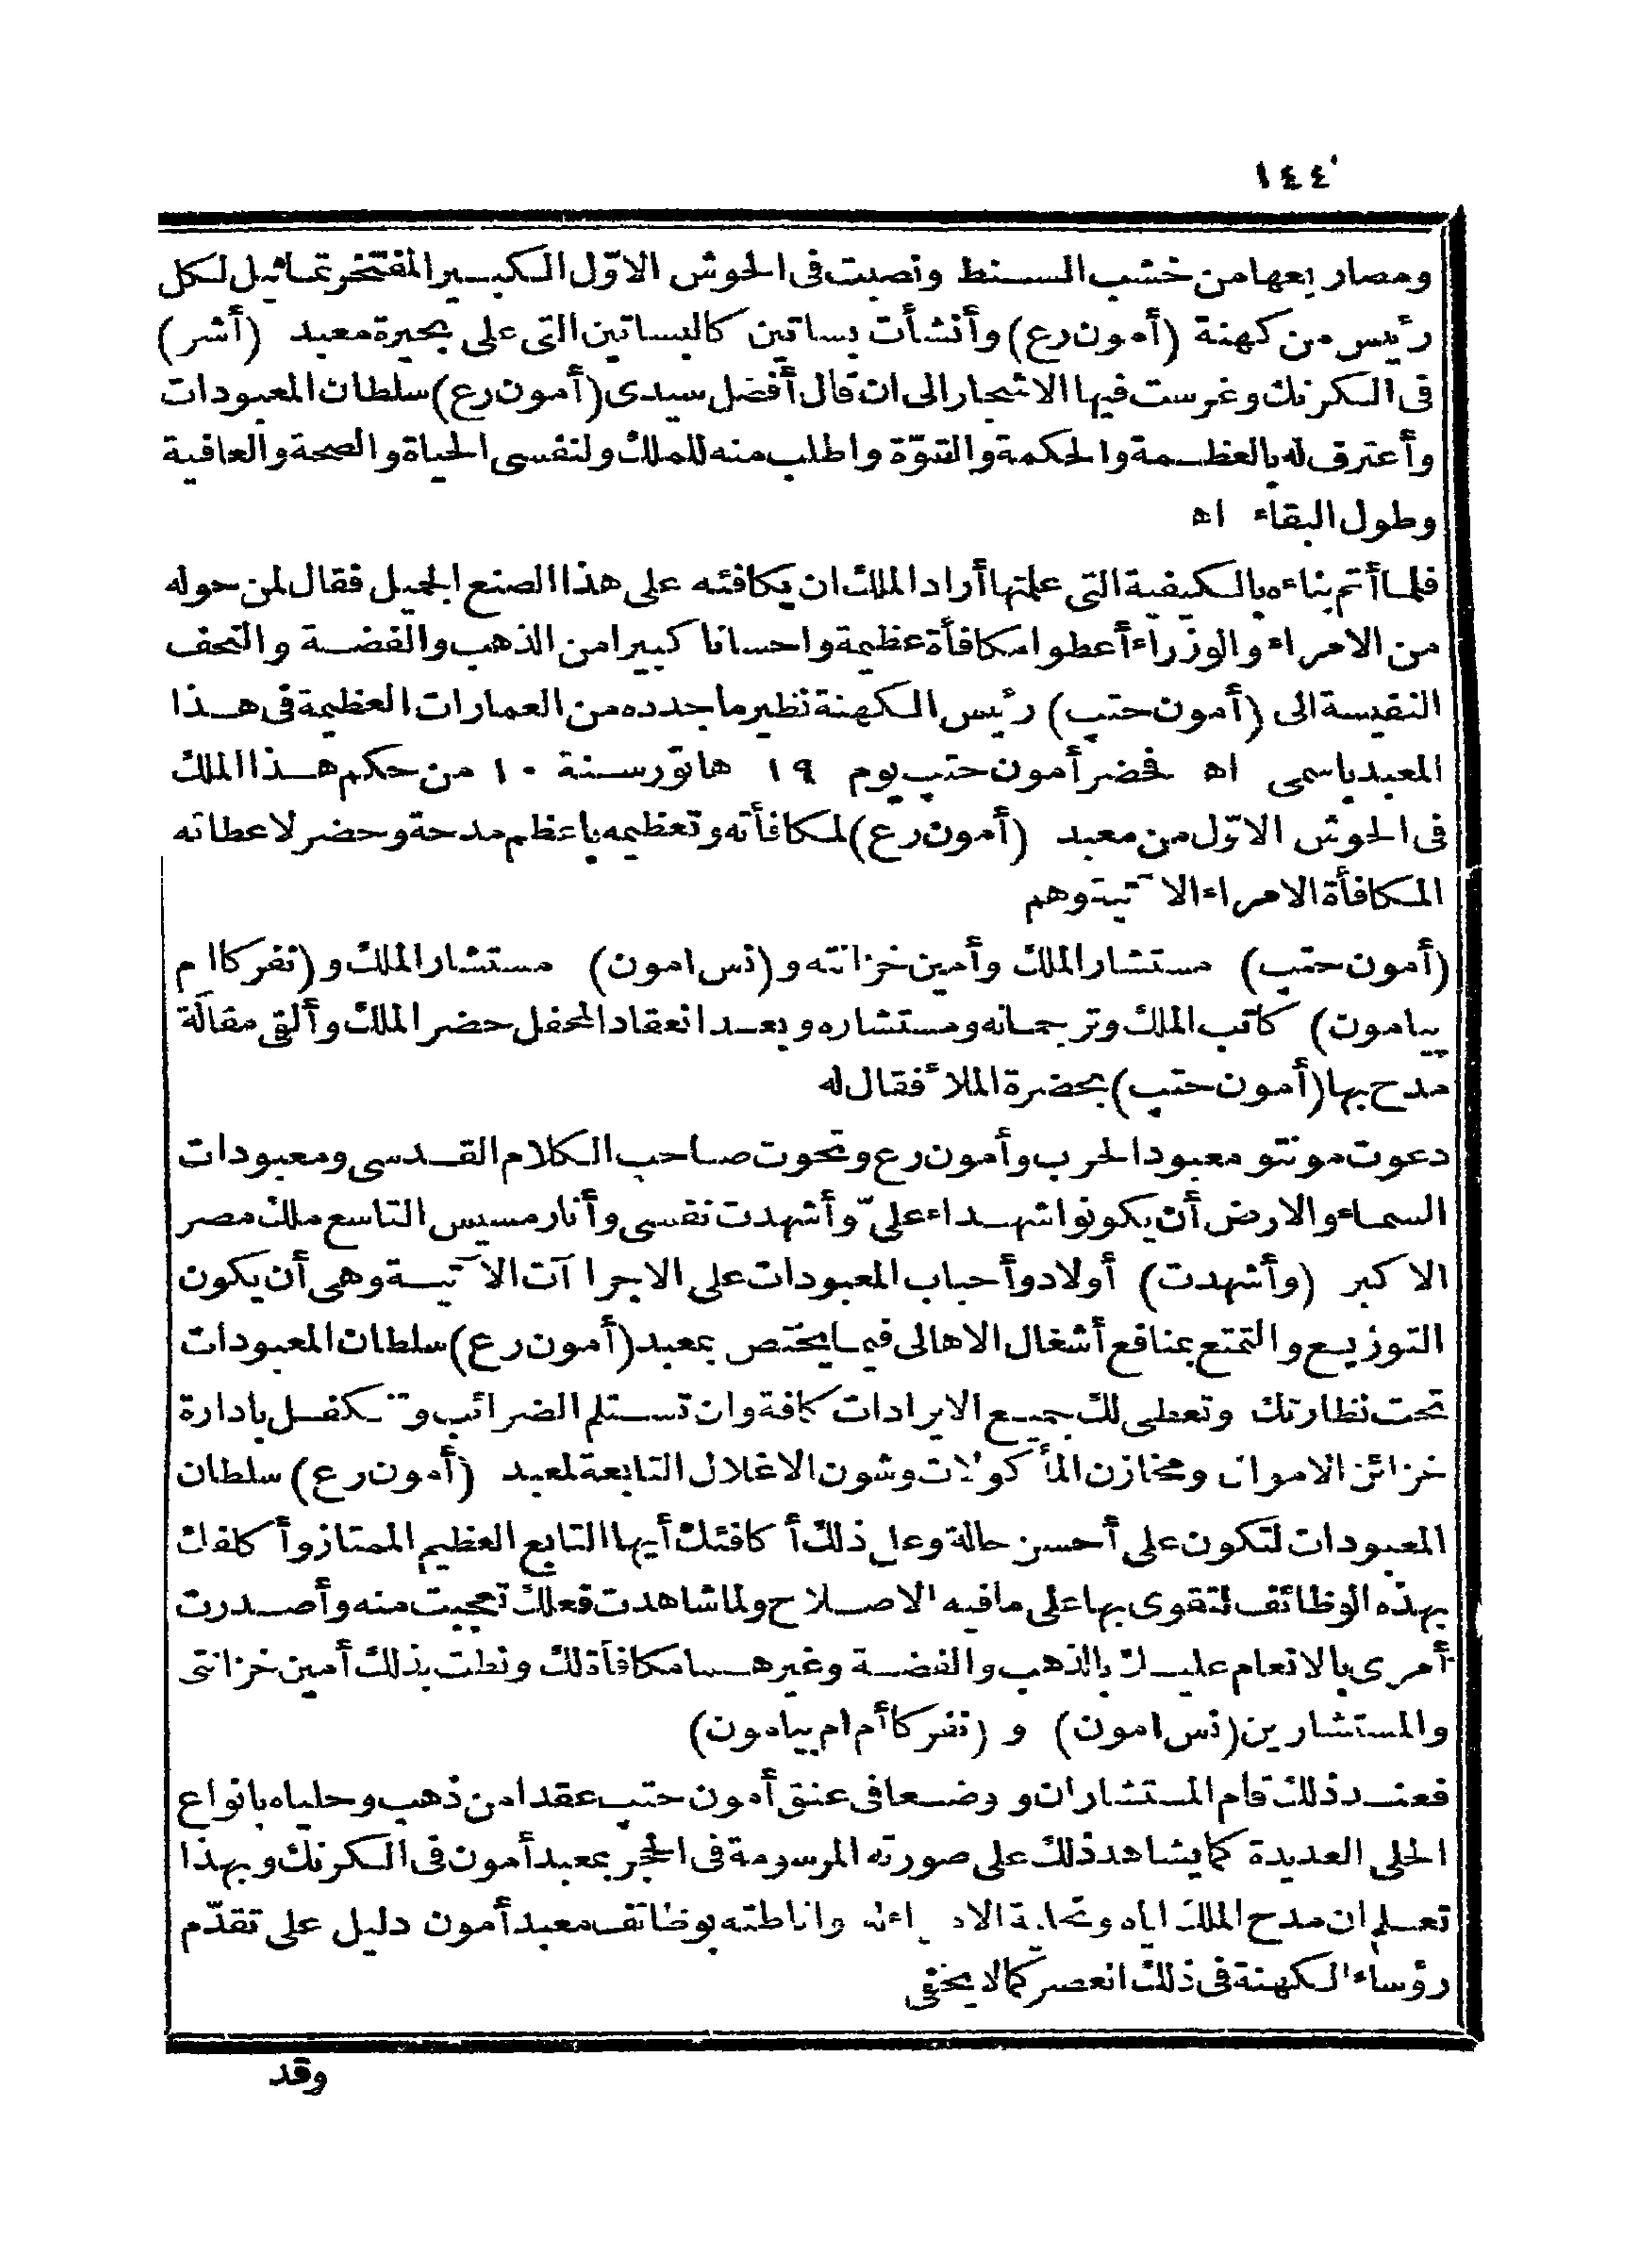 ١٤٤
ومصاريعها من خشب السنط ونصبت فى الحوش الاوّل الكبير المفتخر تماثيل لكل
رئيس من كهنة (أمون رع) وأنشأت بساتين كالبساتين التى على بحيرة معبد (أشر)
فى الكرنك وغرست فيها الاشجار الى ان قال أفضل سيدى (أمون رع) سلطان المعبودات
وأعترف له بالعظمة والحكمة والقوّة واطلب منه للملك ولنفسى الحياة والصحة والعافية
وطول البقاء اه
فلما أتم بناءه بالكيفية التى علمتها أراد الملك ان يكافئه على هذا الصنع الجميل فقال لمن حوله
من الامراء والوزراء أعطوا مكافأة عظيمة واحسانا كبيرا من الذهب والفضة والتحف
النفيسة الى (أمون حتب) رئيس الكهنة نظير ما جدده من العمارات العظيمة فى هذا
المعبد باسمى اه فحضر أمون حتب يوم ١٩ هاتور سنة ١٠ من حكم هذا الملك
فى الحوش الاوّل من معبد (أمون رع) لمكافأته وتعظيمه باعظم مدحة وحضر لاعطائه
المكافأة الامراء الآتية وهم
(أمون حتب) مستشار الملك وأمين خزانته و (نس امون) مستشار الملك و (نفر كا ام
بيامون) كاتب الملك وترجمانه ومستشاره وبعد انعقاد المحفل حضر الملك وألقى مقالة
مدح بها (أمون حتب) بحضرة الملأ فقال له
دعوت مونتو معبود الحرب وأمون رع وتحوت صاحب الكلام القدسى ومعبودات
السماء والارض أن يكونوا شهداء علىّ وأشهدت نفسى وأنا رمسيس التاسع ملك مصر
الاكبر (وأشهدت) أولاد وأحباب المعبودات على الاجراآت الآتية وهى أن يكون
التوزيع والتمتع بمنافع أشغال الاهالى فيما يختص بمعبد (أمون رع) سلطان المعبودات
تحت نظارتك وتعطى لك جميع الايرادات كافة وان تستلم الضرائب وتتكفل بادارة
خزائن الاموال ومخازن المأكولات وشون الاغلال التابعة لمعبد (أمون رع) سلطان
المعبودات لتكون على أحسن حالة وعلى ذلك أكافئك أيها التابع العظيم الممتاز وأكلفك
بهذه الوظائف لتقوى بها على ما فيه الاصلاح ولما شاهدت فعلك تعجبت منه وأصدرت
أمرى بالانعام عليك بالذهب والفضة وغيرهما مكافأة لك ونطت بذلك أمين خزانتى
والمستشارين (نس امون) و (نفر كا أم ام بيامون)
فعند ذلك قام المستشاران ووضعا فى عنق أمون حتب عقدا من ذهب وحلياه بانواع
الحلى العديدة كما يشاهد ذلك على صورته المرسومة فى الحجر بمعبد أمون فى الكرنك وبهذا
تعلم ان مدح الملك اياه وتحلية الامراء له واناطته بوظائف معبد أمون دليل على تقدّم
رؤساء الكهنة فى ذلك العصر كما لا يخفى
وقد